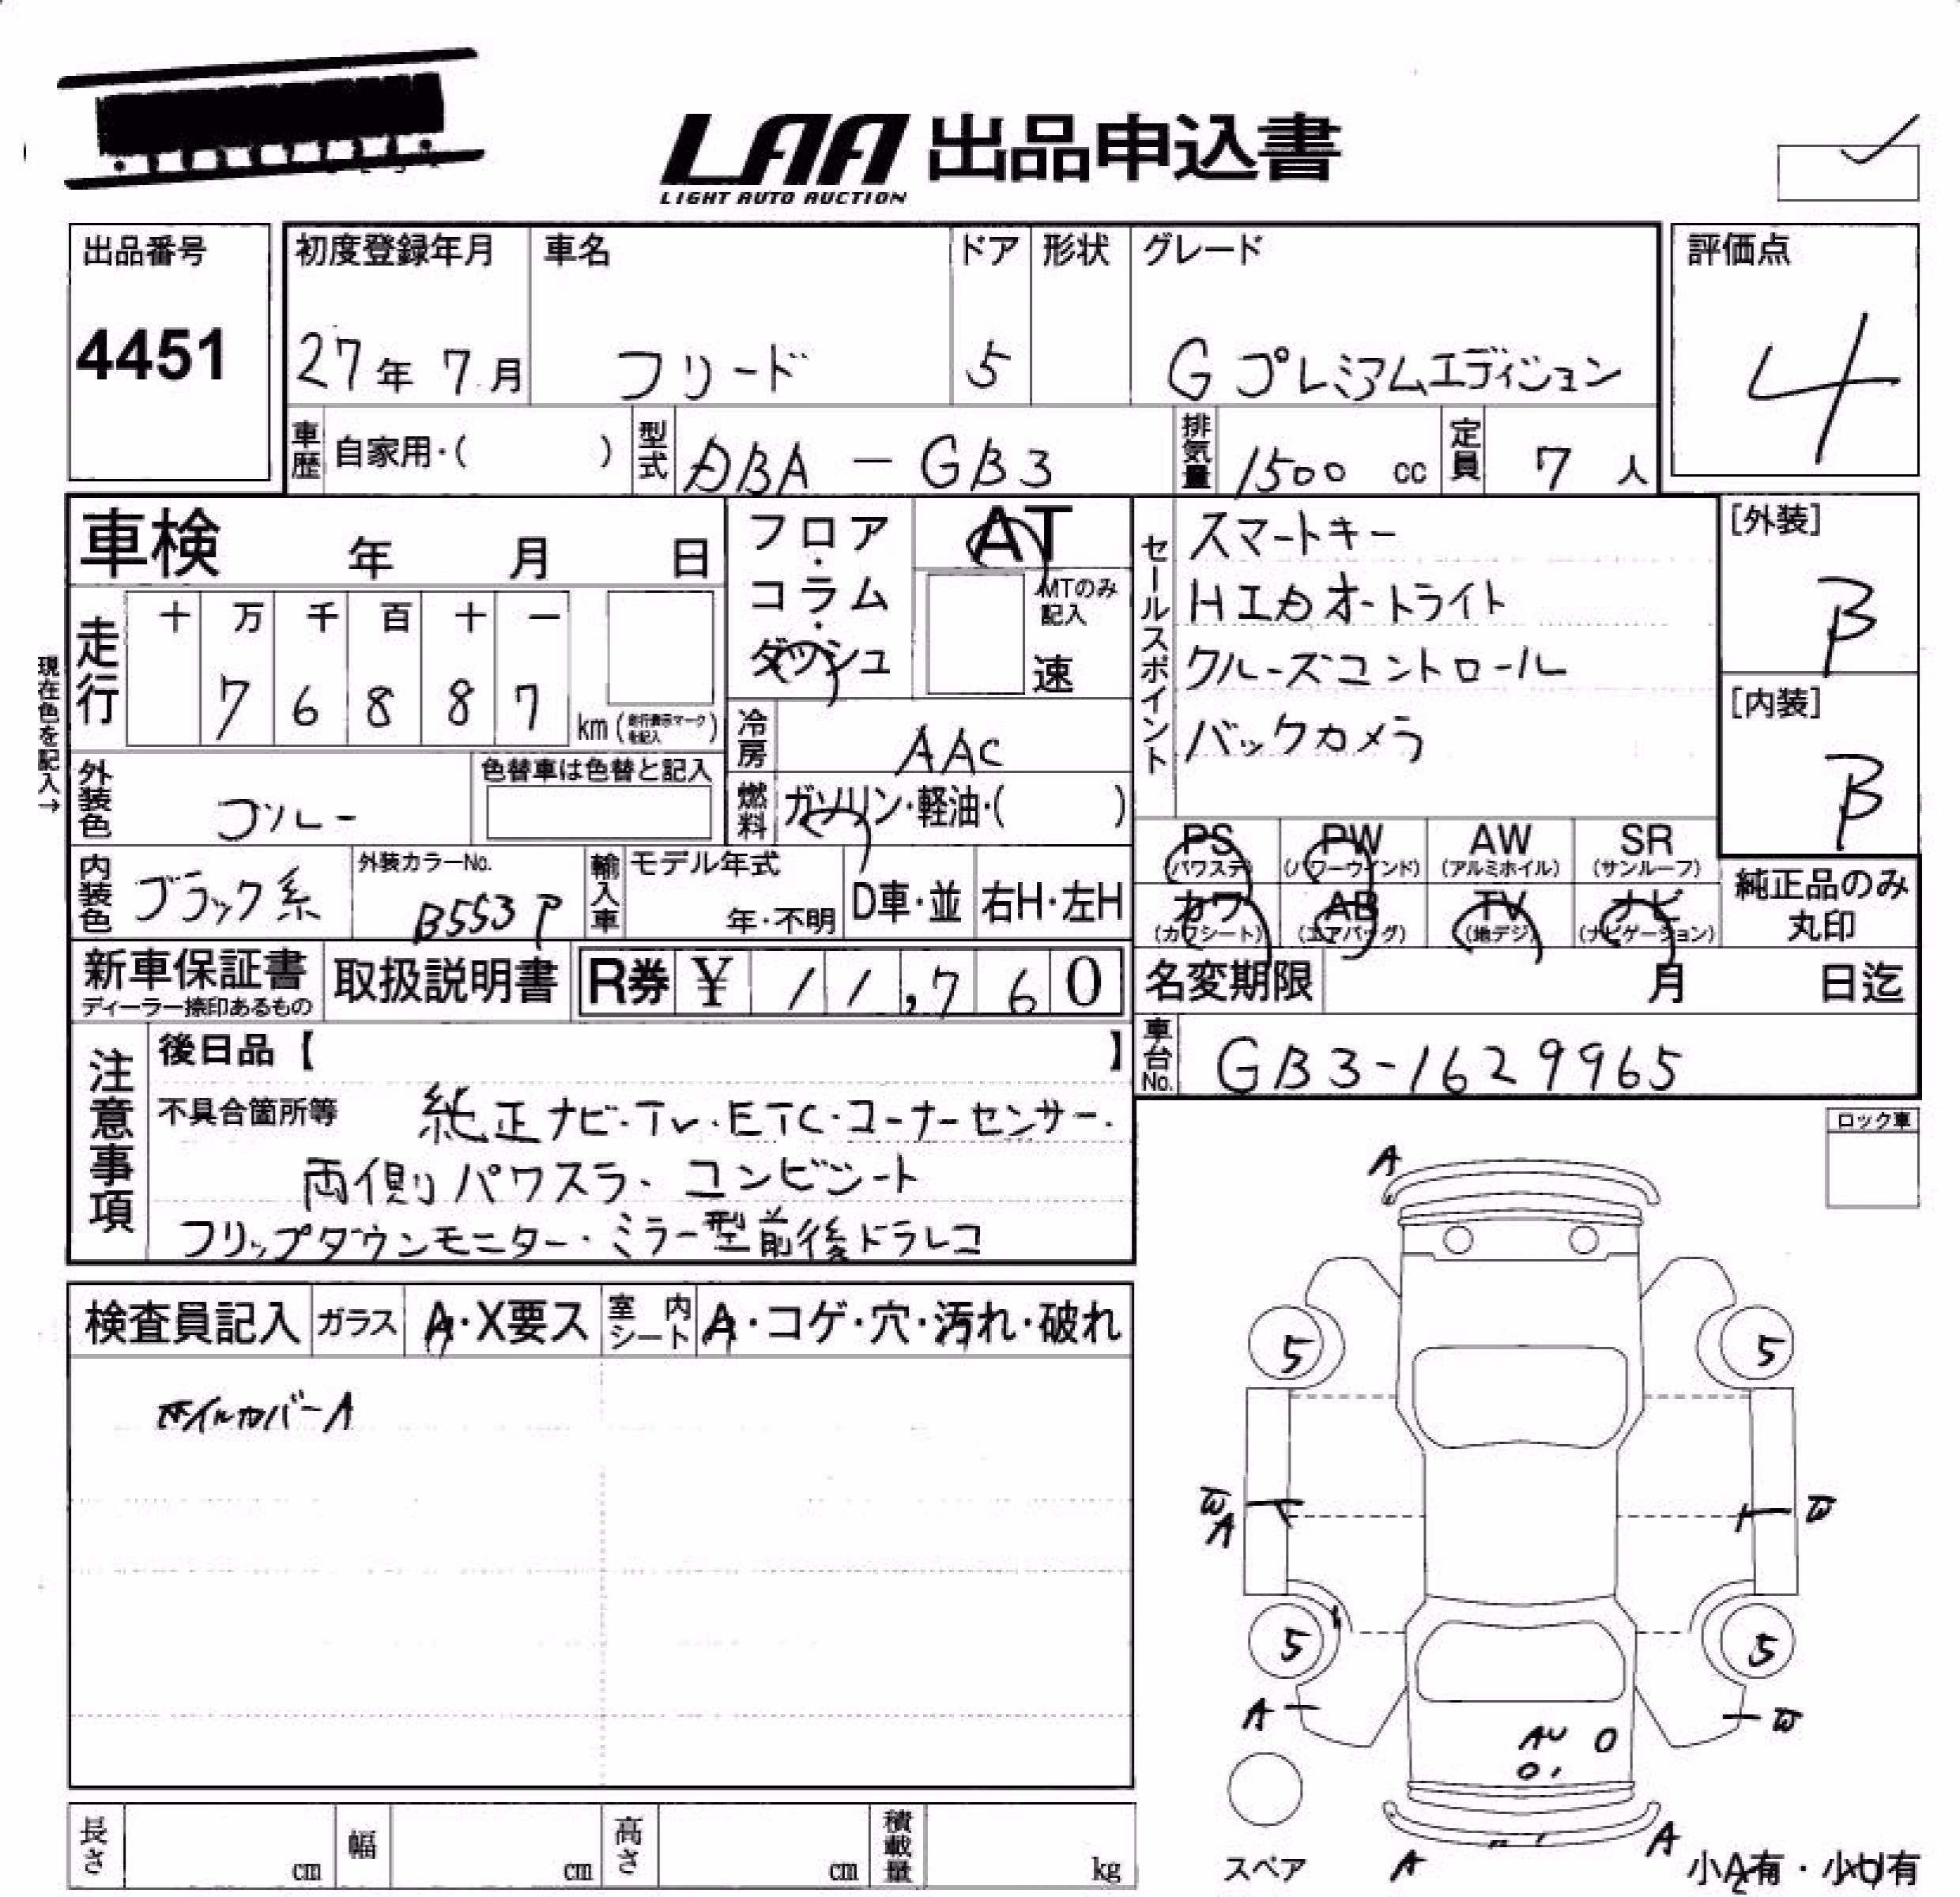 LAA 出品申込書
LIGHT AUTO AUCTION
出品番号
4451
初度登録年月
27年 7月
車名
フリード
ドア
5
形状
グレード
G プレミアムエディション
評価点
4
車歴
自家用・( )
型式
DBA - GB3
排気量
1500 cc
定員
7 人
車検 年 月 日
フロア・コラム・ダッシュ
AT
MTのみ記入
速
セールスポイント
スマートキー
HIDオートライト
クルーズコントロール
バックカメラ
[外装]
B
[内装]
B
現在色を記入→
走行
十 万 千 百 十 一
7 6 8 8 7
km (走行表示マークを記入)
冷房
AAC
燃料
ガソリン・軽油・( )
外装色
ブルー
色替車は色替と記入
内装色
ブラック系
外装カラーNo.
B553P
輸入車
モデル年式
年・不明
D車・並
右H・左H
PS (パワステ)
PW (パワーウインド)
AW (アルミホイル)
SR (サンルーフ)
カワ (カワシート)
AB (エアバッグ)
TV (地デジ)
ナビ (ナビゲーション)
純正品のみ
丸印
新車保証書
ディーラー捺印あるもの
取扱説明書
R券 ¥ 11,760
名変期限 月 日迄
車台No.
GB3-1629965
注意事項
後日品【 】
不具合箇所等 純正ナビ・TV・ETC・コーナーセンサー・
両側パワスラ・コンビシート
フリップダウンモニター・ミラー型前後ドラレコ
ロック車
検査員記入
ガラス
A・X要ス
室内シート
A・コゲ・穴・汚れ・破れ
ホイルカバーA
A
5 5
W
A
W
5 5
A
W
AU
スペア
A
A
小A有・小U有
長さ cm
幅 cm
高さ cm
積載量 kg